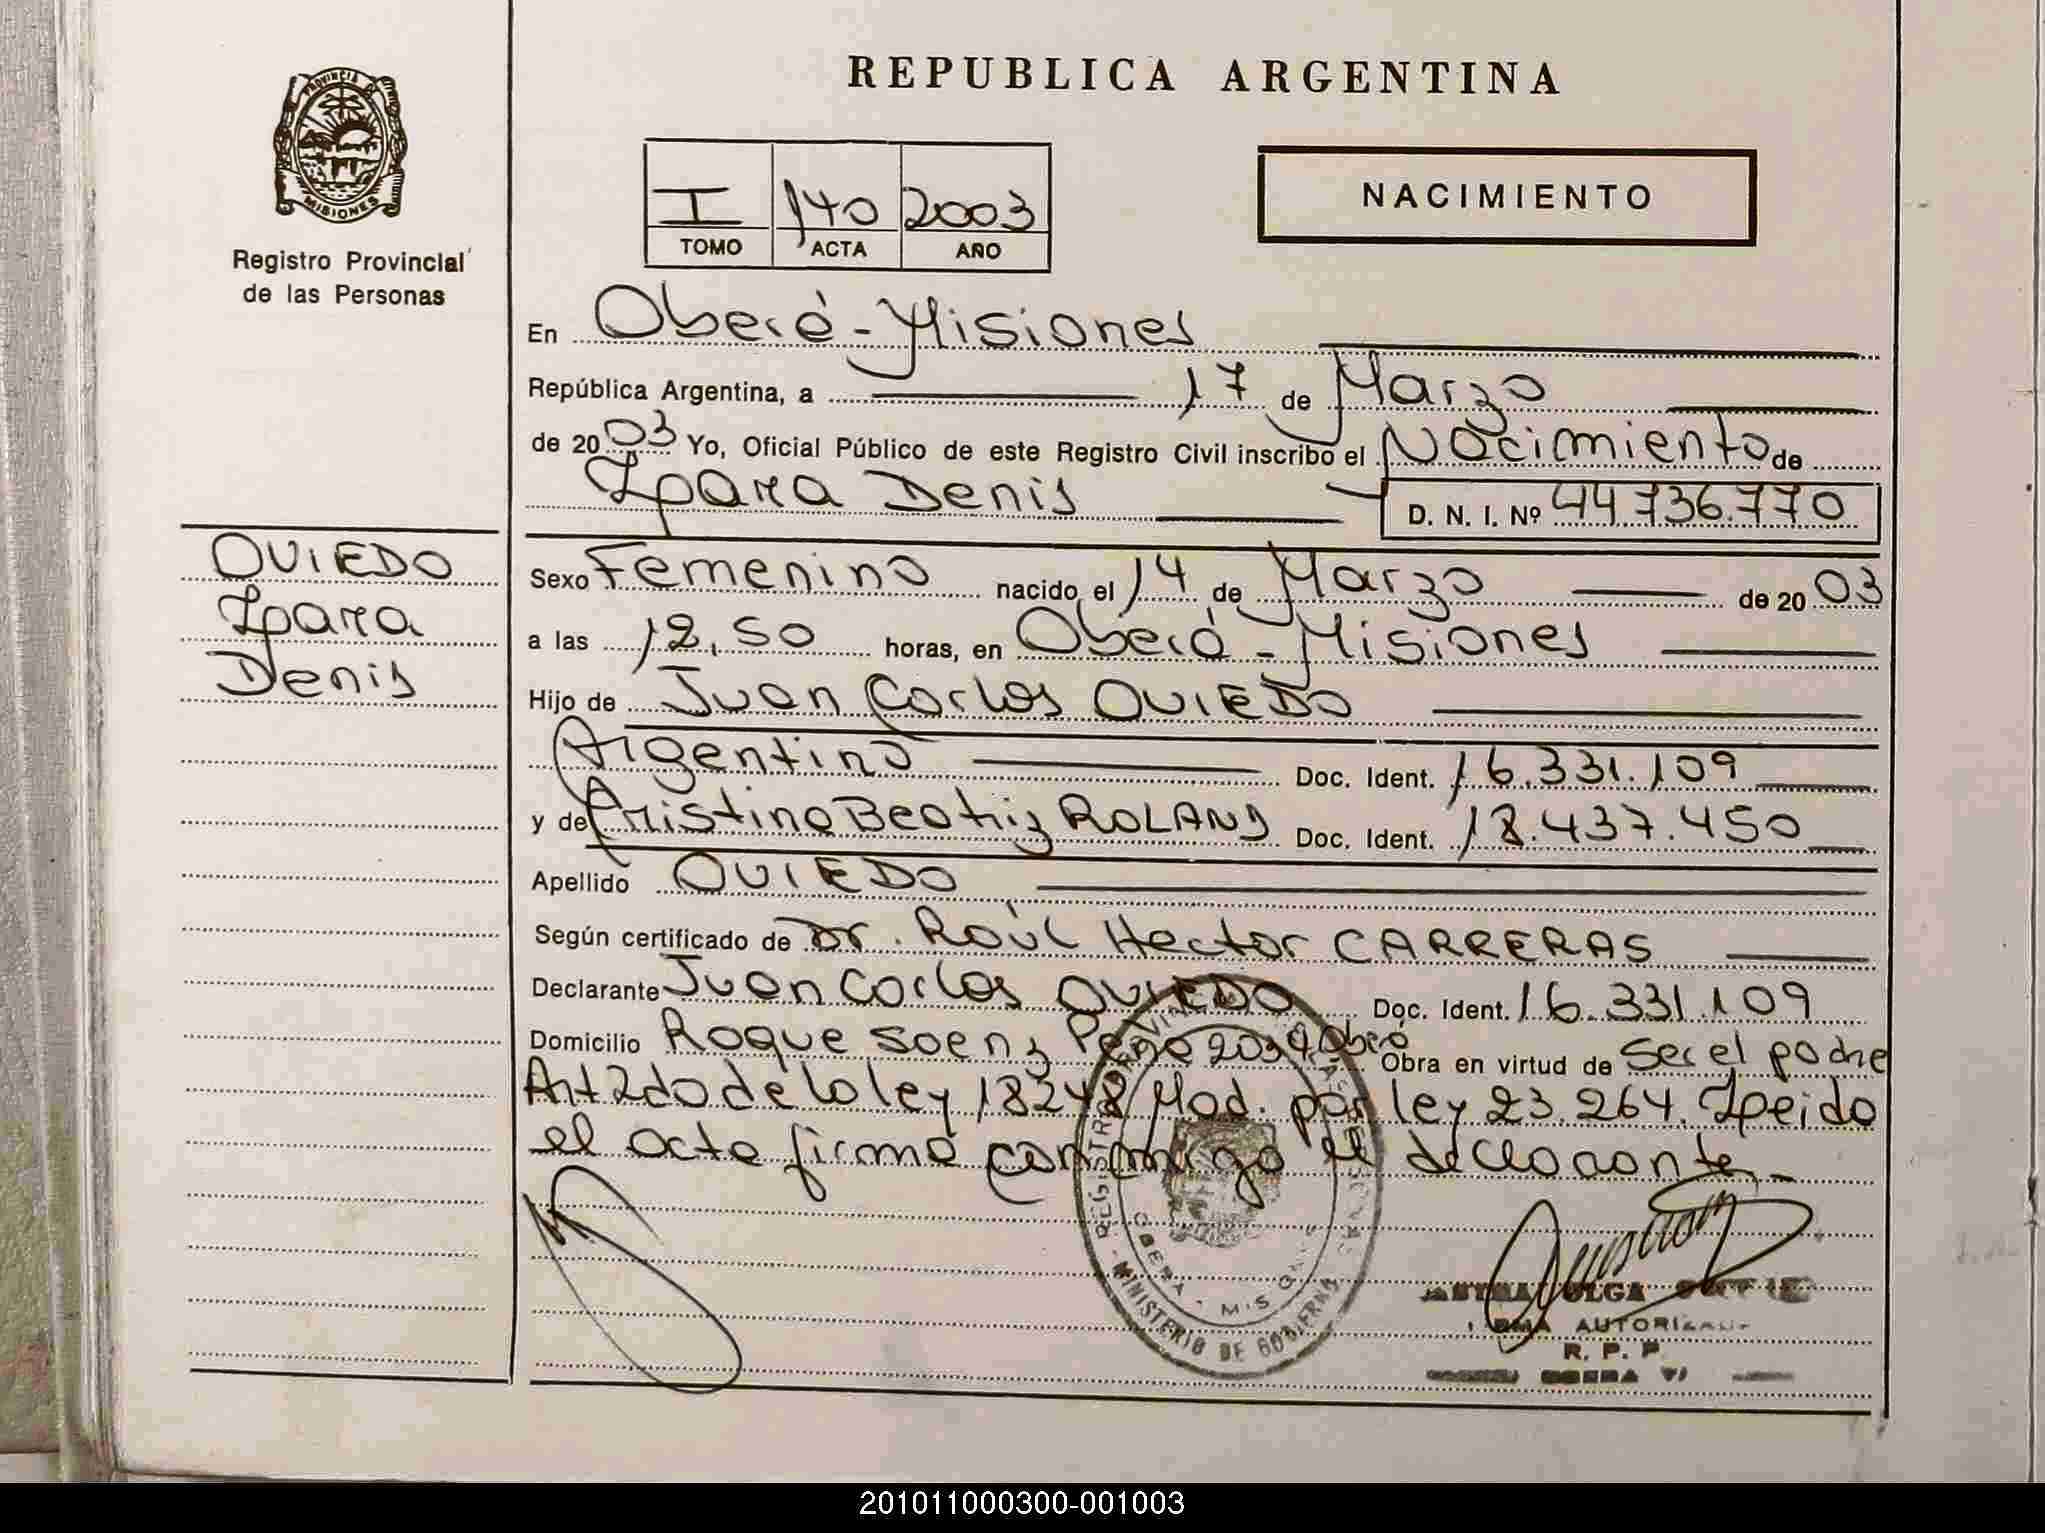 REPUBLICA ARGENTINA
PROVINCIA DE
MISIONES
Registro Provincial
de las Personas
I 140 2003
TOMO ACTA AÑO
NACIMIENTO
En Oberá - Misiones
República Argentina, a 17 de Marzo
de 2003 Yo, Oficial Público de este Registro Civil inscribo el Nacimiento de
Denis D. N. I. Nº 44.736.770
OVIEDO
Denis
Sexo Femenino nacido el 14 de Marzo de 2003
a las 12,50 horas, en Oberá - Misiones
Hijo de Juan Carlos OVIEDO
Argentino Doc. Ident. 16.331.109
y de Cristina Beatriz ROLANY Doc. Ident. 18.437.450
Apellido OVIEDO
Según certificado de Dr. Raúl Hector CARRERAS
Declarante Juan Carlos OVIEDO Doc. Ident. 16.331.109
Domicilio Roque Saenz Peña Oberá Obra en virtud de Ser el padre
Art 2do de la ley 18248 Mod. por ley 23.264. Leido
el acta firma conmigo el declarante -
MINISTERIO DE GOBIERNO
OBERA - MISIONES
OLGA
FIRMA AUTORIZADA
R. P. P.
201011000300-001003